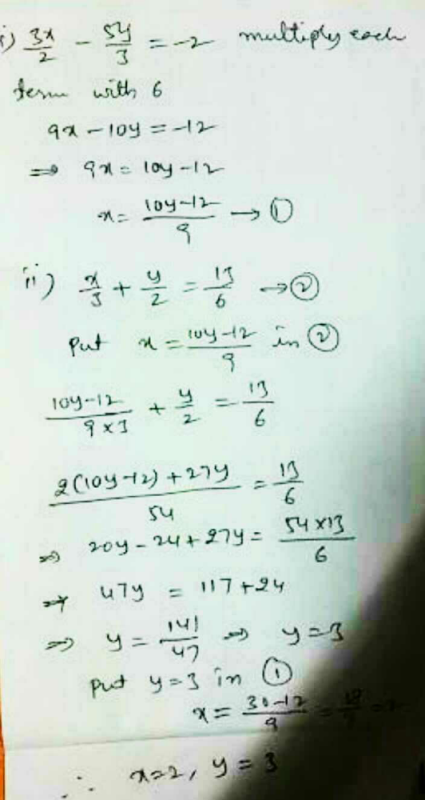 i) 3x/2 - 5y/3 = -2 multiply each
term with 6
9x - 10y = -12
⇒ 9x = 10y - 12
x = 10y-12/9 → ①
ii) x/3 + y/2 = 13/6 → ②
Put x = 10y-12/9 in ②
10y-12/9×3 + y/2 = 13/6
2(10y-12) + 27y/54 = 13/6
⇒ 20y - 24 + 27y = 54×13/6
⇒ 47y = 117+24
⇒ y = 141/47 ⇒ y=3
Put y=3 in ①
x = 30-12/9 = 18/9 = 2
∴ x=2, y=3